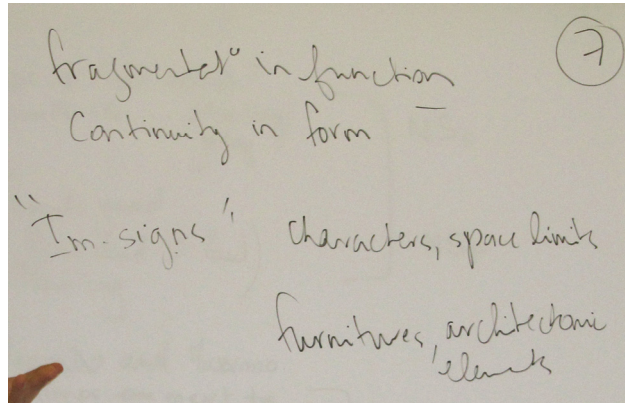 7
fragmentat° in function
Continuity in form
"Im-signs" characters, space limits
furnitures, architectonic
elements